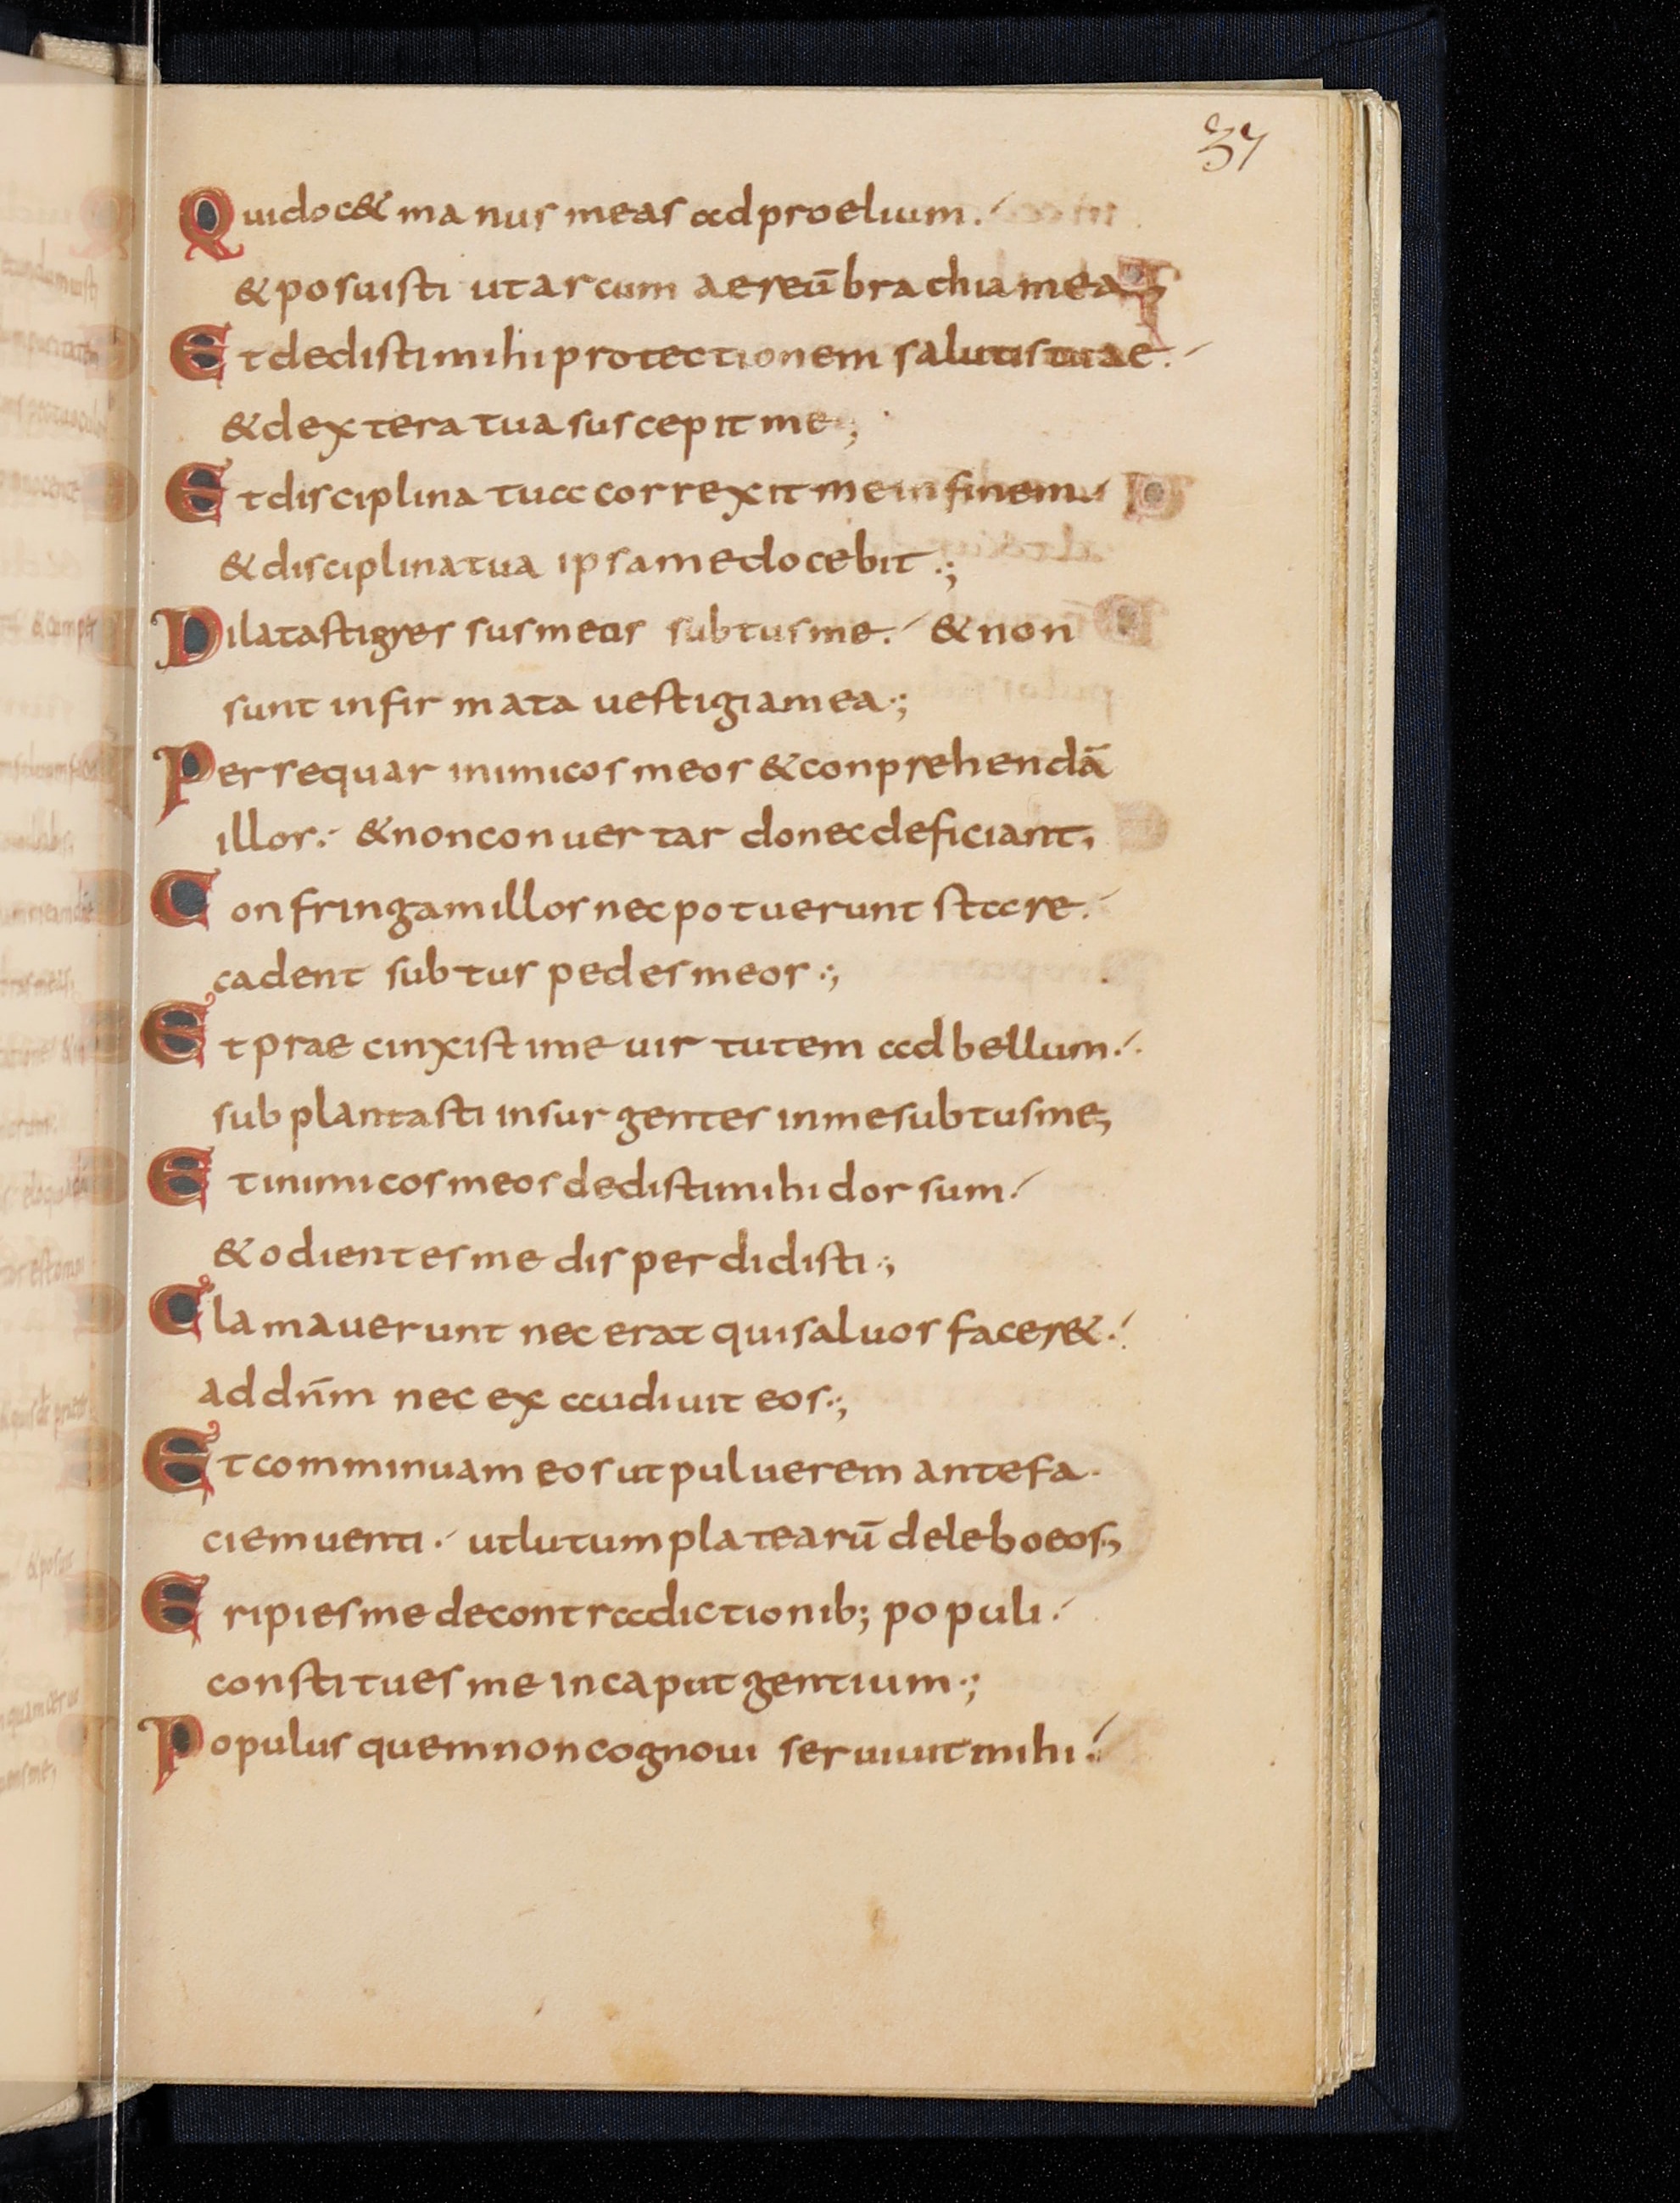 37
Qui doc& manus meas ad proelium.
& posuisti ut arcum aereū brachia mea;
Et dedisti mihi protectionem salutis tuae.
& dextera tua suscepit me;
Et disciplina tua correxit me in finem.
& disciplina tua ipsa me docebit.;
Dilatasti gressus meos subtus me. & non
sunt infirmata uestigia mea.;
Persequar inimicos meos & conprehendā
illos. & non conuertar donec deficiant;
Confringam illos nec potuerunt stare.
cadent subtus pedes meos.;
Et praecinxisti me uirtutem ad bellum.
subplantasti insurgentes in me subtus me;
Et inimicos meos dedisti mihi dorsum.
& odientes me disperdidisti.;
Clamauerunt nec erat qui saluos facer&.
ad dn̄m nec exaudiuit eos.;
Et comminuam eos ut puluerem ante fa
ciem uenti. ut lutum platearū delebo eos;
Eripies me de contradictionib; populi.
constitues me in caput gentium.;
Populus quem non cognoui seruiuit mihi.